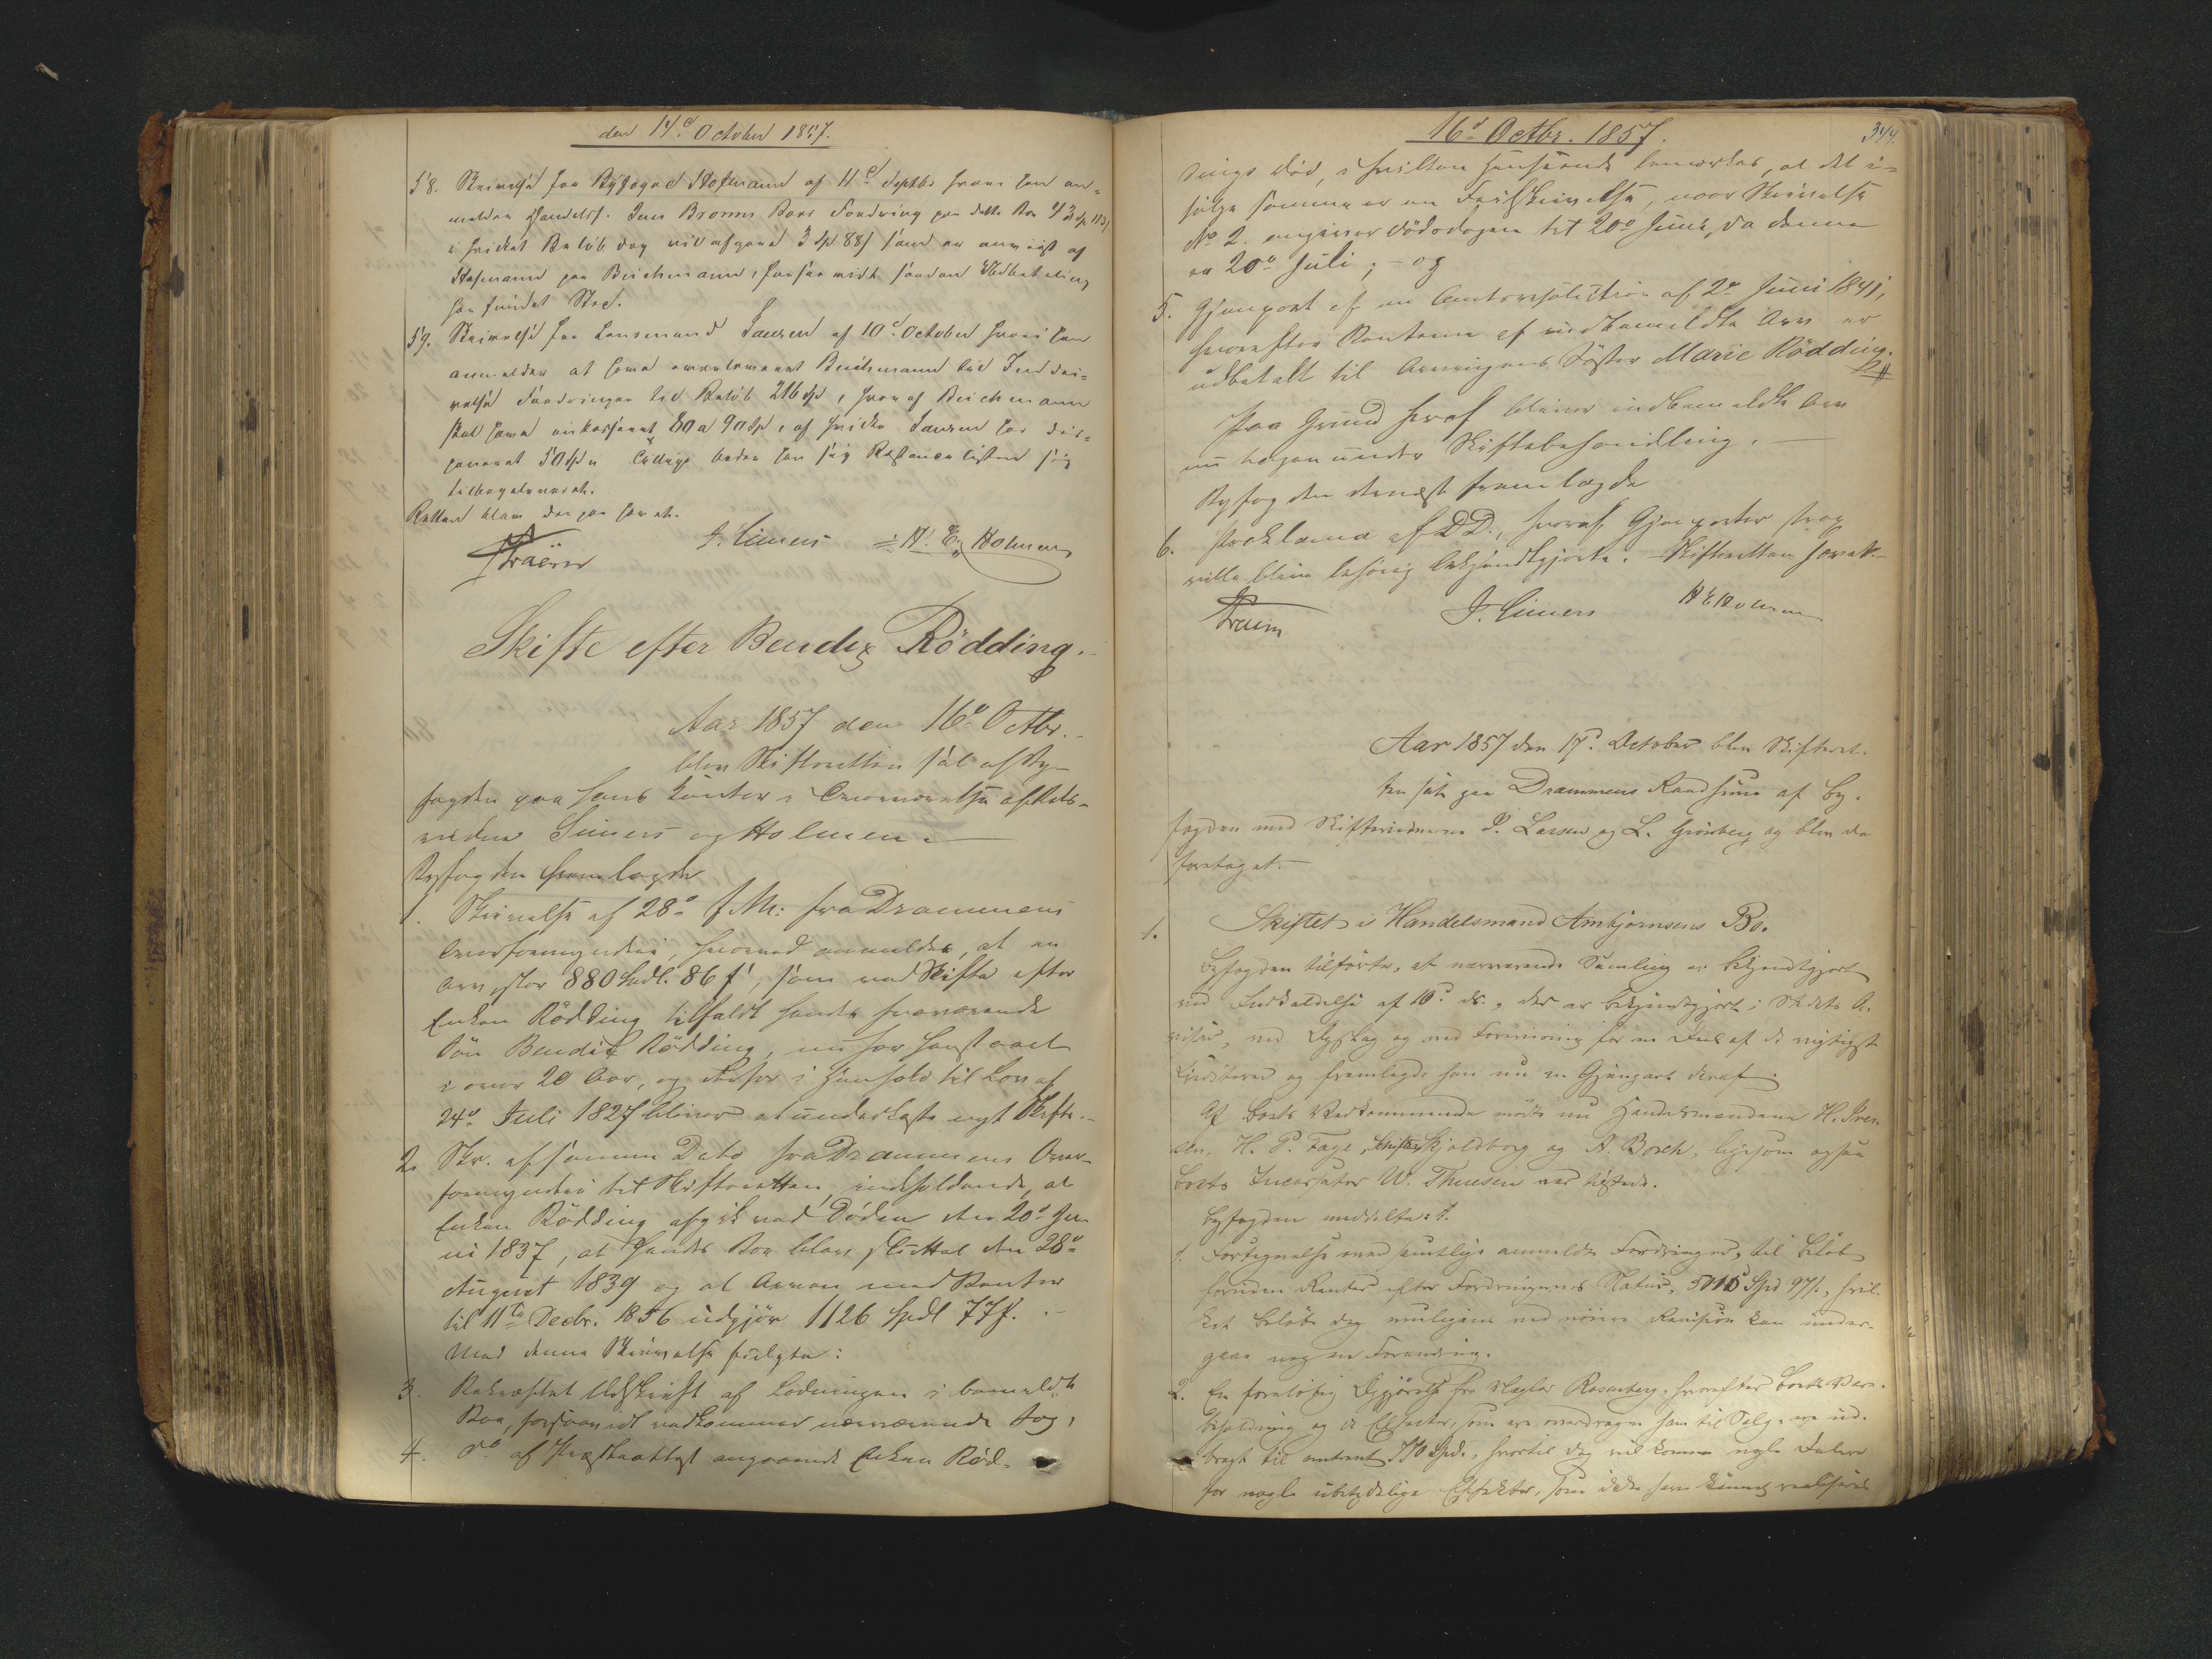 den 14d October 1857.
58. Skrivelse fra Byfoged Hofmann af 11d Septbr hvori han an-
melder Handelsf. Jens Bronns Boes Fordring paa dette Bo 43 Sp 113/
i hvilket Beløb dog vil afgaae 3 Sp 88/ som er anviist af
Hofmann paa Beichmann, forsaavidt saadan Udbetaling
har fundet Sted.
59. Skrivelse fra Lensmand Sausen af 10d October hvori han
anmelder at have overleveret Beichmann til Inddri-
velse Fordringer til Beløb 216 Sp, hvoraf Beichmann
skal have inkasseret 80 a 90 Sp, af hvilke Sausen har
50 Sp beder han sig Restancelisten sig
tilbageleveret.
Retten blev derpaa hævet.
J. Simers H. E. Holmen
Skifte efter Bendix Rödding.
Aar 1857 den 16d Octbr.
blev Skifteretten sat af By-
fogden paa hans Kontor i Overværelse af Rets-
vidner Simers og Holmen.
Byfogden fremlagde
1. Skrivelse af 28d f. M. fra Drammens
Overformynderi, hvorved anmeldes, at en
Arv, stor 880 Spdl. 86 ß, som ved Skifte efter
Enken Rödding tilfaldt hendes fraværende
Søn Bendix Rödding, nu har henstaaet
i over 20 Aar, og derfor i Henhold til Lov af
24d Juli 1827 bliver at underkaste nyt Skifte.
2. Skr. af samme Dato fra Drammens Over-
formynderi til Skifteretten, indeholdende, at
Enken Rödding afgik ved Døden den 20d Ju-
ni 1837, at hendes Bo blev sluttet den 28d
August 1839 og at Arven med Renter
til 11te Decbr. 1856 udgjør 1126 Spdl 77 ß.
Med denne Skrivelse fulgte:
3. Bekræftet Udskrift af Lodningen i bemeldte
Bo, forsaavidt vedkommer nærværende Sag,
4. do af Præsteattest angaaende Enken Röd-
16d Octbr. 1857.
344.
dings Død, i hvilken Henseende bemærkes, at det i-
følge samme er en Feilskrivelse, naar Skrivelse
No 2. angiver Dødsdagen til 20d Juni, da denne
er 20d Juli; - og
5. Gjenpart af en Amtsresolution af 2d Juni 1841,
hvorefter Renterne af midbemeldte Arv er
udbetalt til Arvingens Søster Marie Rödding.
Paa Grund heraf bliver midbemeldte Arv
nu tagen under Skiftebehandling.
Byfogden dernæst fremlagde
6. Proklama af DD., hvoraf Gjenparter strax
ville blive behørig bekjendtgjorte. Skifteretten hævet.
J. Simers H E Holmen
Aar 1857 den 17d October blev Skifteret-
ten sat paa Drammens Raadhuus af By-
fogden med Skiftevidnerne P. Larsen og L. Grönberg og blev da
foretaget.
1. Skiftet i Handelsmand Arnbjörnsens Bo.
Byfogden tilførte, at nærværende Samling er bekjendtgjort
ved Indkaldelse af 10d ds., der er bekjendtgjort i Stedets A-
viser, ved Opslag og ved Forevisning for en Deel af de vigtigste
Creditorer og fremlagde han nu en Gjenpart deraf.
Af Boets Vedkommende mødte nu Handelsmændene H. Iver-
sen, H. P. Fage, Skjoldborg og A. Borch, ligesom ogsaa
Boets Incassator W. Thuesen var tilstede.
Byfogden meddelte:
1. Fortegnelse over samtlige anmeldte Fordringer, til Beløb
foruden Renter efter Fordringernes Natur, 5016 Spd 97/, hvil-
ket Beløb dog muligens ved nøiere Revision kan under-
gaae nogen Forandring.
2. En foreløbig Opgjørelse fra Mægler Rosenberg, hvorefter Boets Vare-
beholdning og de Effecter, som ere overdragne ham til Salg, ere ud-
bragt til omtrent 770 Spd., hvortil dog vil komme nogle Dalere
for nogle ubetydelige Effekter, som ikke have kunnet realiseres